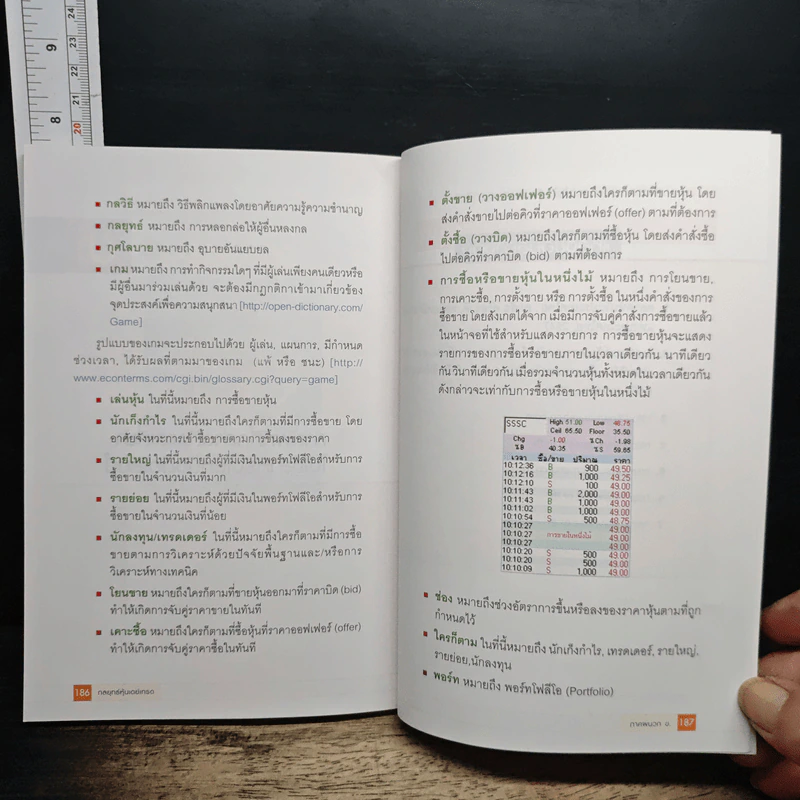 24
23
22
21
20
9
8
▪ กลวิธี หมายถึง วิธีพลิกแพลงโดยอาศัยความรู้ความชำนาญ
▪ กลยุทธ์ หมายถึง การหลอกล่อให้ผู้อื่นหลงกล
▪ กุศโลบาย หมายถึง อุบายอันแยบยล
▪ เกม หมายถึง การทำกิจกรรมใดๆ ที่มีผู้เล่นเพียงคนเดียวหรือ
มีผู้อื่นมาร่วมเล่นด้วย จะต้องมีกฎกติกาเข้ามาเกี่ยวข้อง
จุดประสงค์เพื่อความสนุกสนาน [http://open-dictionary.com/
Game]
รูปแบบของเกมจะประกอบไปด้วย ผู้เล่น, แผนการ, มีกำหนด
ช่วงเวลา, ได้รับผลที่ตามมาของเกม (แพ้ หรือ ชนะ) [http://
www.econterms.com/cgi.bin/glossary.cgi?query=game]
▪ เล่นหุ้น ในที่นี้หมายถึง การซื้อขายหุ้น
▪ นักเก็งกำไร ในที่นี้หมายถึงใครก็ตามที่มีการซื้อขาย โดย
อาศัยจังหวะการเข้าซื้อขายตามการขึ้นลงของราคา
▪ รายใหญ่ ในที่นี้หมายถึงผู้ที่มีเงินในพอร์ทโฟลีโอสำหรับการ
ซื้อขายในจำนวนเงินที่มาก
▪ รายย่อย ในที่นี้หมายถึงผู้ที่มีเงินในพอร์ทโฟลีโอสำหรับการ
ซื้อขายในจำนวนเงินที่น้อย
▪ นักลงทุน/เทรดเดอร์ ในที่นี้หมายถึงใครก็ตามที่มีการซื้อ
ขายตามการวิเคราะห์ด้วยปัจจัยพื้นฐานและ/หรือการ
วิเคราะห์ทางเทคนิค
▪ โยนขาย หมายถึงใครก็ตามที่ขายหุ้นออกมาที่ราคาบิด (bid)
ทำให้เกิดการจับคู่ราคาขายในทันที
▪ เคาะซื้อ หมายถึงใครก็ตามที่ซื้อหุ้นที่ราคาออฟเฟอร์ (offer)
ทำให้เกิดการจับคู่ราคาซื้อในทันที
186 กลยุทธ์หุ้นเดย์เทรด
▪ ตั้งขาย (วางออฟเฟอร์) หมายถึงใครก็ตามที่ขายหุ้น โดย
ส่งคำสั่งขายไปต่อคิวที่ราคาออฟเฟอร์ (offer) ตามที่ต้องการ
▪ ตั้งซื้อ (วางบิด) หมายถึงใครก็ตามที่ซื้อหุ้น โดยส่งคำสั่งซื้อ
ไปต่อคิวที่ราคาบิด (bid) ตามที่ต้องการ
▪ การซื้อหรือขายหุ้นในหนึ่งไม้ หมายถึง การโยนขาย,
การเคาะซื้อ, การตั้งขาย หรือ การตั้งซื้อ ในหนึ่งคำสั่งของการ
ซื้อขาย โดยสังเกตได้จาก เมื่อมีการจับคู่คำสั่งการซื้อขายแล้ว
ในหน้าจอที่ใช้สำหรับแสดงรายการ การซื้อขายหุ้นจะแสดง
รายการของการซื้อหรือขายภายในเวลาเดียวกัน นาทีเดียว
กัน วินาทีเดียวกัน เมื่อรวมจำนวนหุ้นทั้งหมดในเวลาเดียวกัน
ดังกล่าวจะเท่ากับการซื้อหรือขายหุ้นในหนึ่งไม้
SSSC High 51.00 Low 48.75
Ceil 65.50 Floor 35.50
Chg -1.00 %Ch -1.98
%B 40.35 %S 59.65
เวลา ซื้อ/ขาย ปริมาณ ราคา
10:12:36 B 900 49.50
10:12:16 B 1,000 49.25
10:12:10 S 100 49.00
10:11:43 B 2,000 49.00
10:11:43 B 1,000 49.00
10:11:02 B 1,000 49.00
10:10:54 S 500 48.75
10:10:27 49.00
10:10:27 การขายในหนึ่งไม้ 49.00
10:10:27 49.00
10:10:20 S 500 49.00
10:10:20 S 500 49.00
10:10:09 S 1,000 49.00
▪ ช่อง หมายถึงช่วงอัตราการขึ้นหรือลงของราคาหุ้นตามที่ถูก
กำหนดไว้
▪ ใครก็ตาม ในที่นี้หมายถึง นักเก็งกำไร, เทรดเดอร์, รายใหญ่,
รายย่อย,นักลงทุน
▪ พอร์ท หมายถึง พอร์ทโฟลีโอ (Portfolio)
ภาคผนวก ข. 187